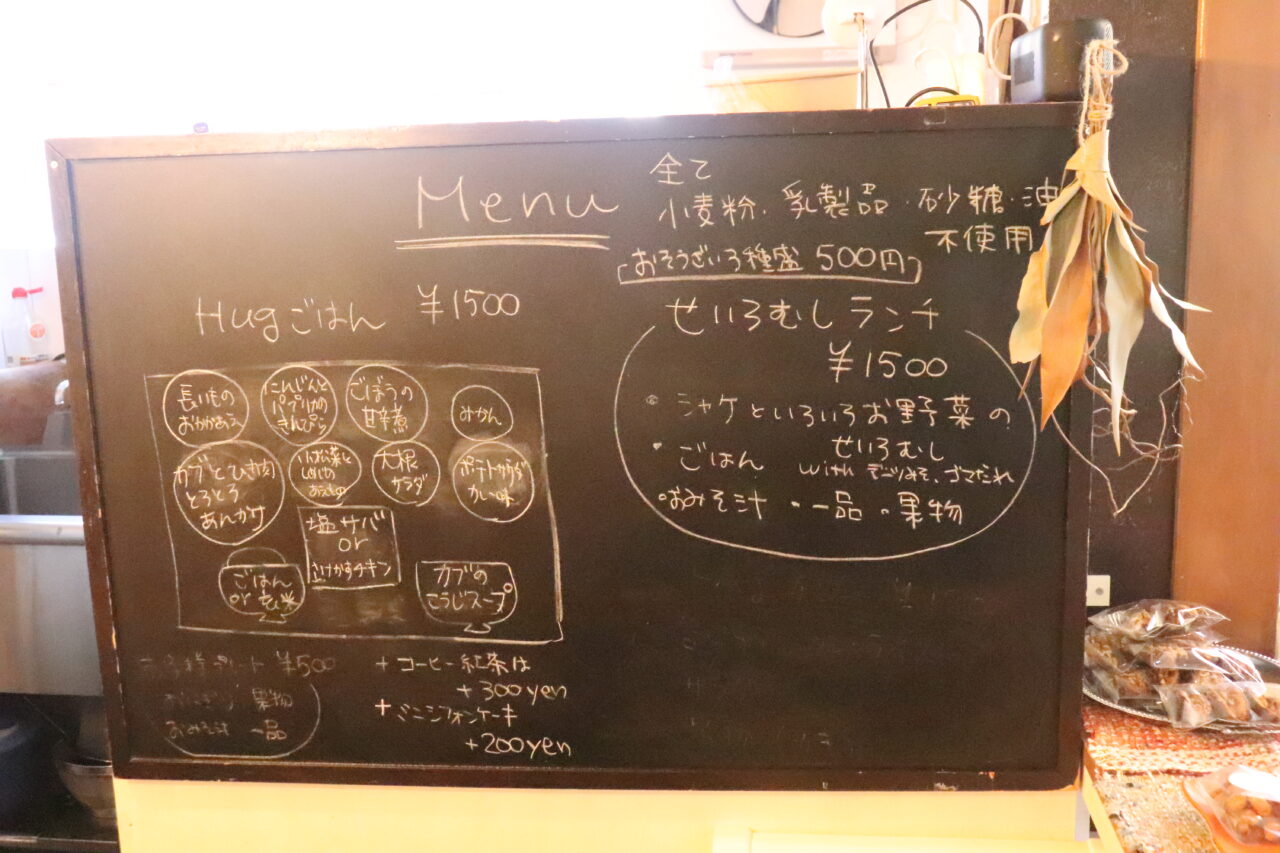 Menu
全て
小麦粉・乳製品・砂糖・油
不使用
おそうざい3種盛 500円
Hugごはん ¥1500
長いもの
おかかあえ
にんじんと
パプリカの
きんぴら
ごぼうの
甘辛煮
みかん
カブとひき肉
とろとろ
あんかけ
大根
サラダ
ポテトサラダ
カレー味
塩サバ
or
さけかすチキン
ごはん
or 玄米
カブの
こうじスープ
¥500
果物
おみそ汁 一品
+コーヒー紅茶は
+300yen
+ミニシフォンケーキ
+200yen
せいろむしランチ
¥1500
・シャケといろいろお野菜の
せいろむし
・ごはん with デーツみそ、ゴマだれ
・おみそ汁・一品・果物